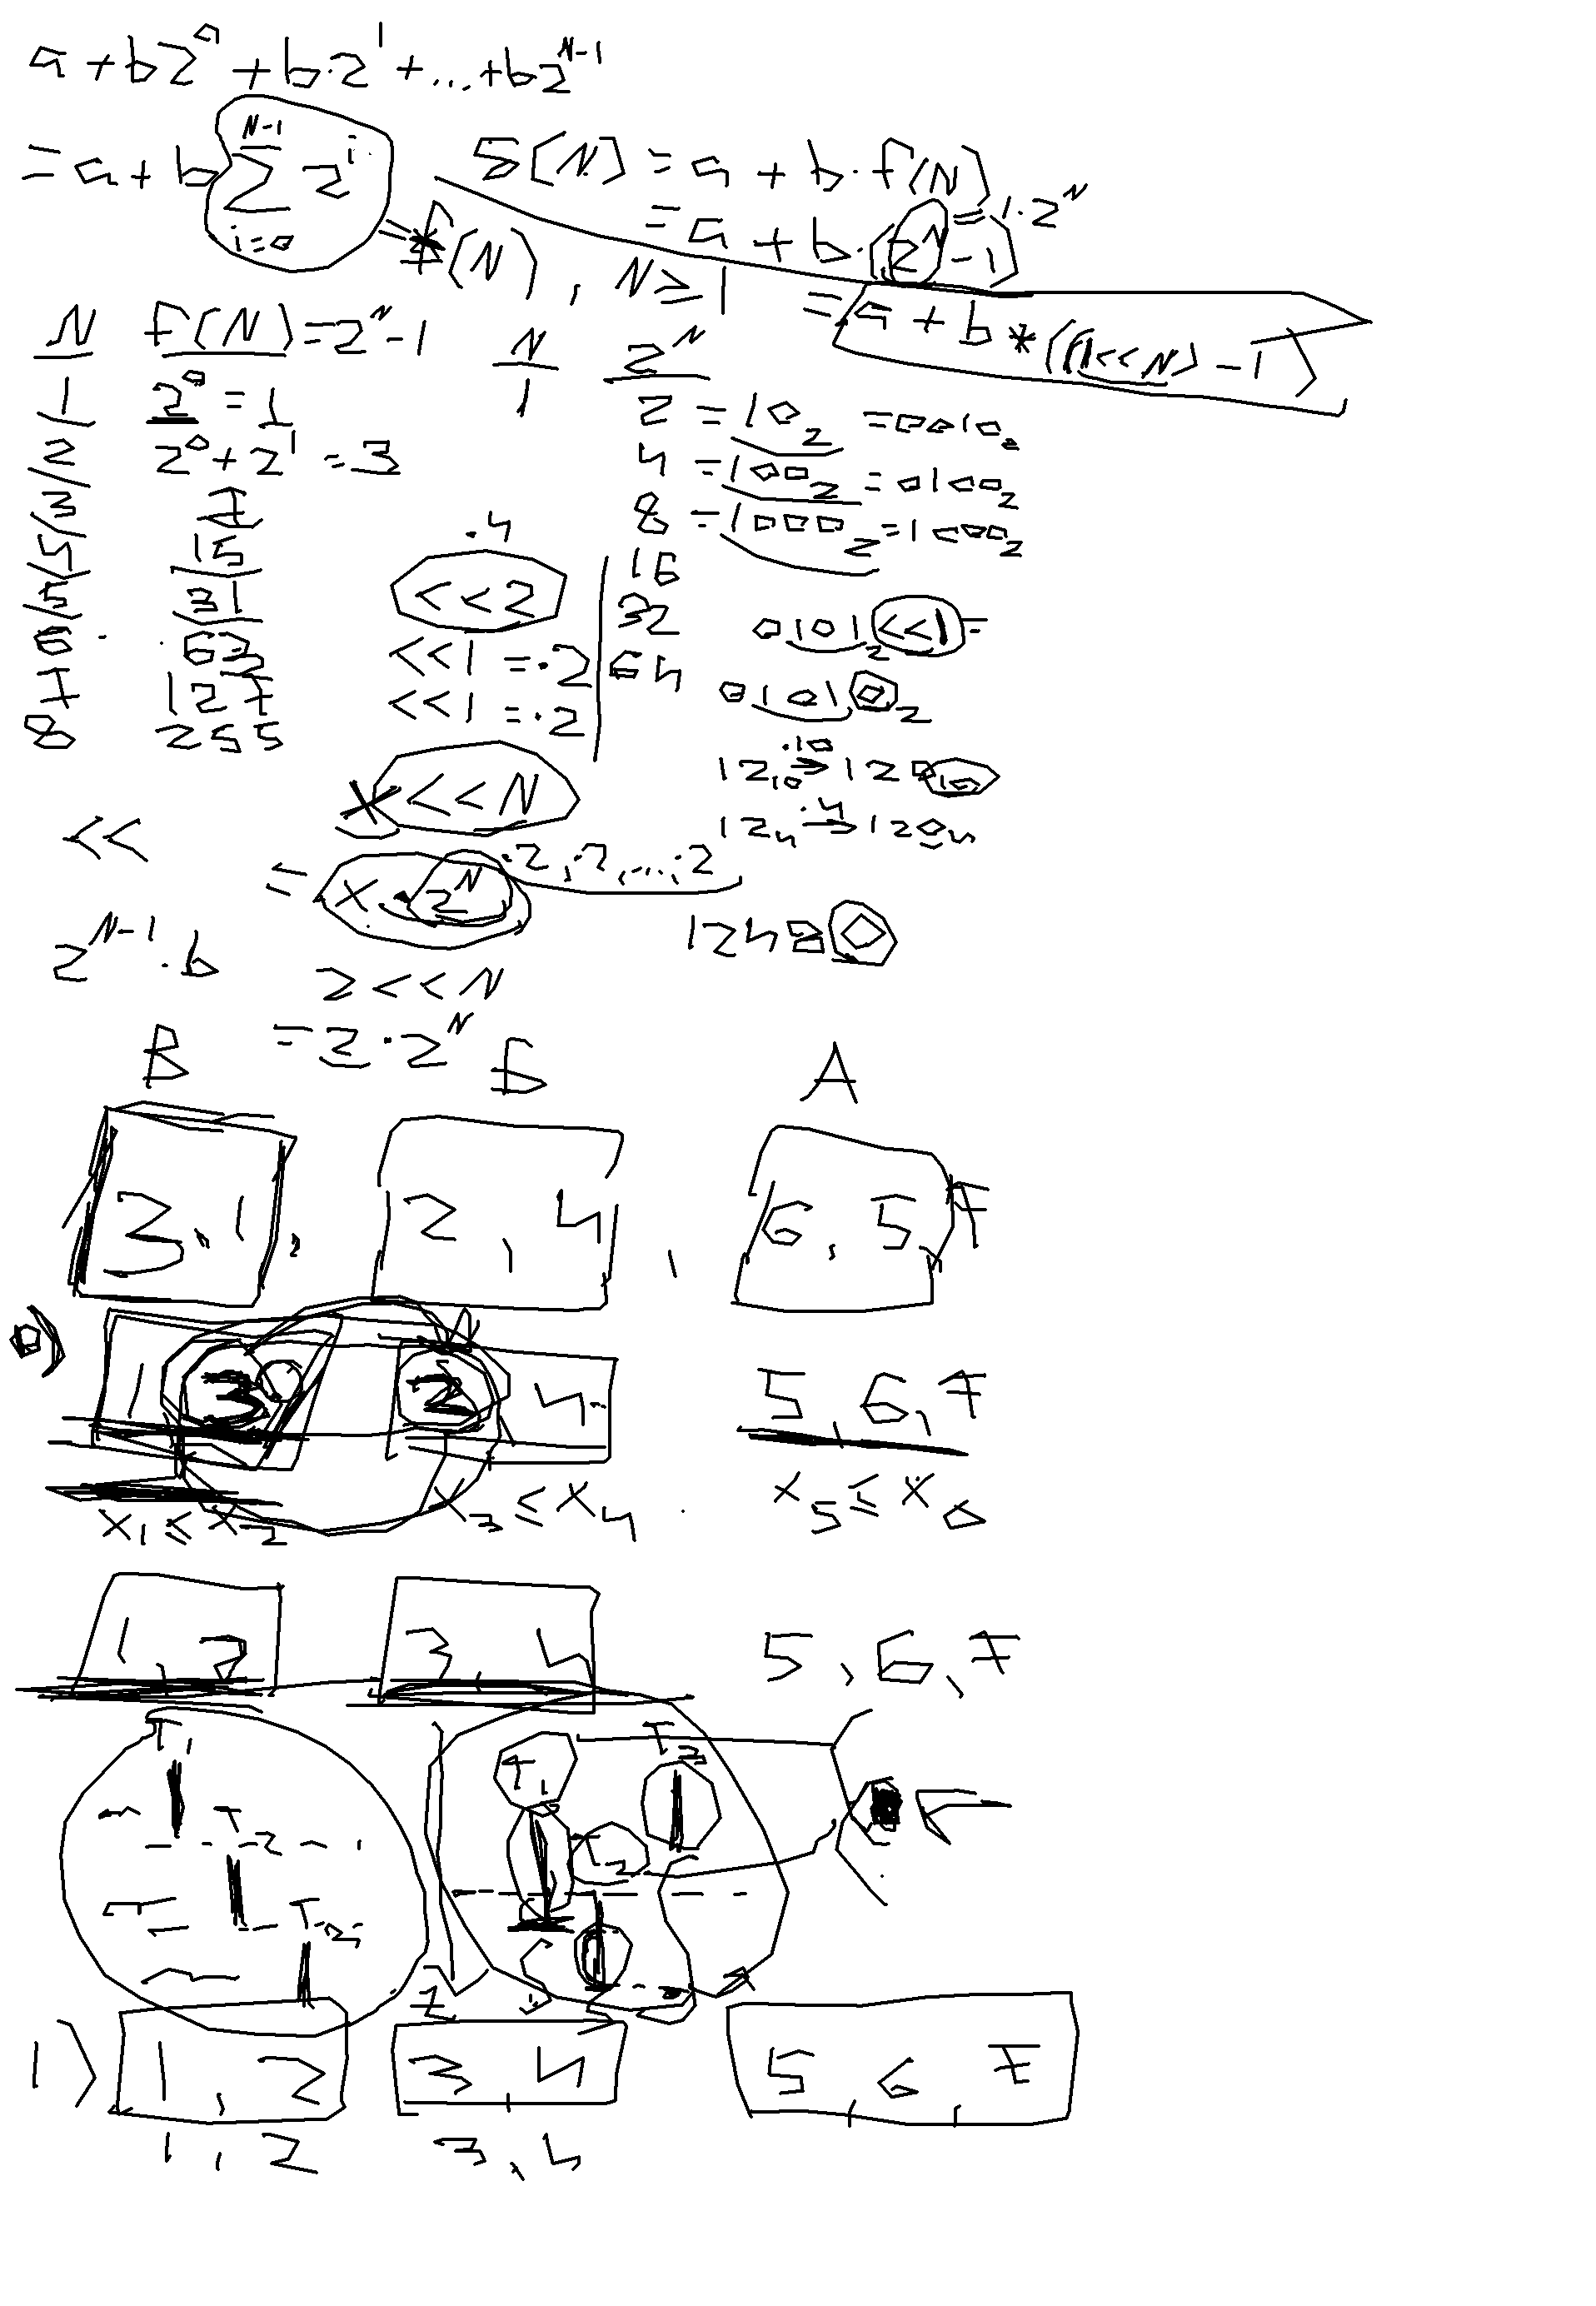 a + b2⁰ + b·2¹ + ... + b2ᴺ⁻¹
= a + b ∑ᵢ₌₀ᴺ⁻¹ 2ⁱ = f(N), N ≥ 1
S(N) = a + b·f(N)
= a + b·(2ᴺ - 1) = 1·2ᴺ
= a + b * ((1<<N) - 1)
N f(N) = 2ᴺ - 1
1 2⁰ = 1
2 2⁰ + 2¹ = 3
3 7
4 15
5 31
6 63
7 127
8 255
N 2ᴺ
1 2 = 10₂ = 0010₂
4 = 100₂ = 0100₂
8 = 1000₂ = 1000₂
16
32
64
·4
<<2
<<1 = ·2
<<1 = ·2
0101₂<<1 =
01010₂
12₁₀ →·10 120₁₀
12₄ →·4 120₄
12480
<<
x<<N
= x·2ᴺ ·2, ·2, ..., ·2
2ᴺ⁻¹·b
2<<N
= 2·2ᴺ
В Б А
3, 1, 2, 4, 6, 5, 7
0) 1 3 2 4 5, 6, 7
x₁ ≤ x₂ x₃ ≤ x₄ x₅ ≤ x₆
1, 2 3, 4 5, 6, 7
T₁ T₂ T₃
T₁ T₂ T₃
1) 1, 2 3, 4 5, 6, 7
1, 2 3, 4